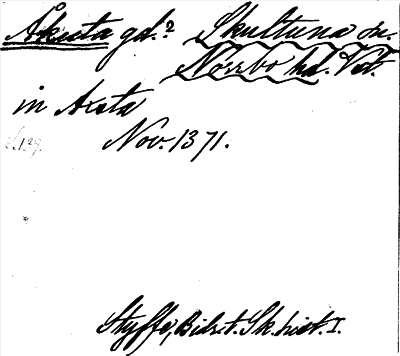 Akesta gd.? Skultuna sn.
Norrbo hd. Vst.
in Axsta
Nov. 1371.
s. 139.
Styffe, Bihr. t. Sk. hist. I.